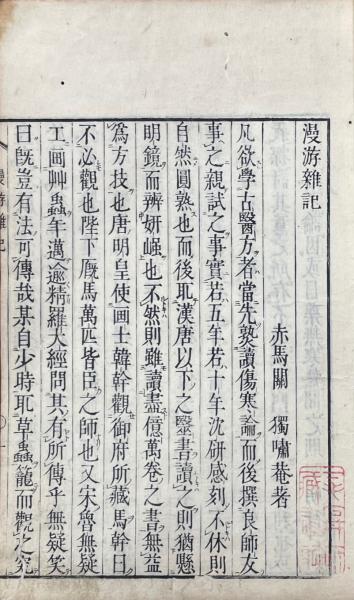 漫游雜記
赤馬關　獨嘯菴著
凡欲學古醫方者當先熟讀傷寒論而後撰良師友
事之親試之事實若五年若十年沈研感刻不休則
自然圓熟也而後取漢唐以下之醫書讀之則猶懸
明鏡而辨妍媸也不然則雖讀盡億萬卷之書無益
爲方技也唐明皇使画士韓幹觀御府所藏馬幹曰
不必觀也陛下厩馬萬匹皆臣之師也又宋魯無疑
工画艸蟲年邁逾精羅大經問其有所傳乎無疑笑
曰旣豈有法可傳哉某自少時取草蟲籠而觀之究
漫游雜記